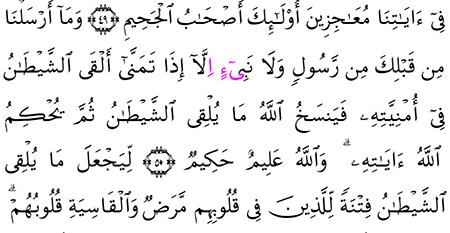 فِىٓ ءَايَٰتِنَا مُعَٰجِزِينَ أُوْلَٰٓئِكَ أَصْحَٰبُ ٱلْجَحِيمِ ٤٩ وَمَآ أَرْسَلْنَا
مِن قَبْلِكَ مِن رَّسُولٍ وَلَا نَبِىٓءٍ اِلَّآ إِذَا تَمَنَّىٰٓ أَلْقَى ٱلشَّيْطَٰنُ
فِىٓ أُمْنِيَّتِهِۦ فَيَنسَخُ ٱللَّهُ مَا يُلْقِى ٱلشَّيْطَٰنُ ثُمَّ يُحْكِمُ
ٱللَّهُ ءَايَٰتِهِۦ ۗ وَٱللَّهُ عَلِيمٌ حَكِيمٌ ٥٠ لِّيَجْعَلَ مَا يُلْقِى
ٱلشَّيْطَٰنُ فِتْنَةً لِّلَّذِينَ فِى قُلُوبِهِم مَّرَضٌ وَٱلْقَاسِيَةِ قُلُوبُهُمْ ۗ